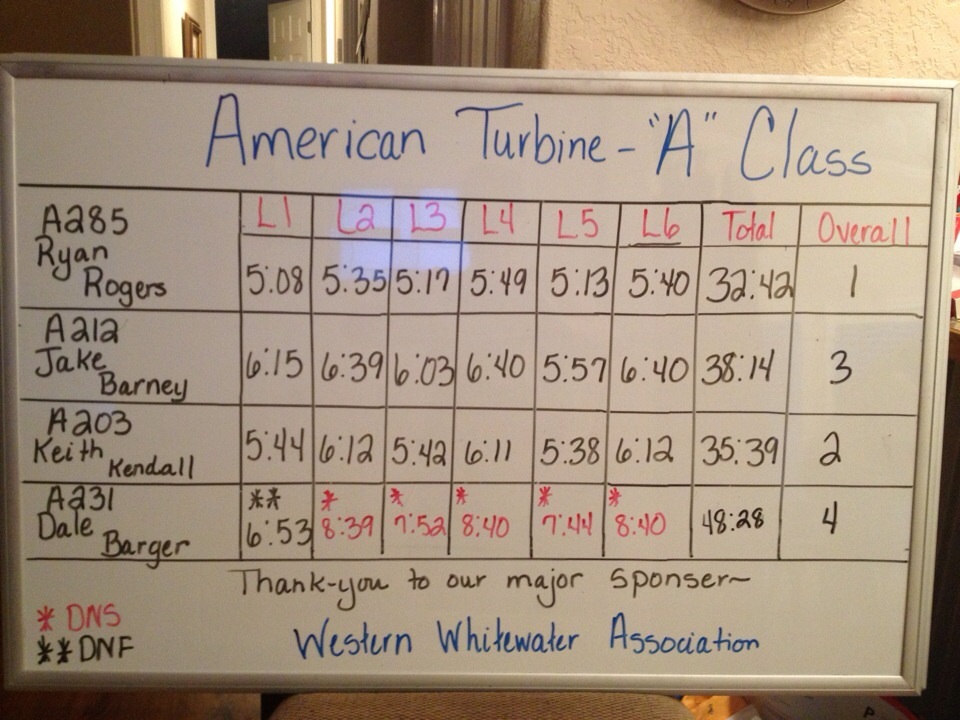 American Turbine - "A" Class
A285 L1 L2 L3 L4 L5 L6 Total Overall
Ryan
Rogers 5:08 5:35 5:17 5:49 5:13 5:40 32:42 1
A212
Jake 6:15 6:39 6:03 6:40 5:57 6:40 38:14 3
Barney
A203
Keith Kendall 5:44 6:12 5:42 6:11 5:38 6:12 35:39 2
A231 ** * * * * *
Dale 6:53 8:39 7:52 8:40 7:44 8:40 48:28 4
Barger
Thank-you to our major sponser~
* DNS
** DNF
Western Whitewater Association